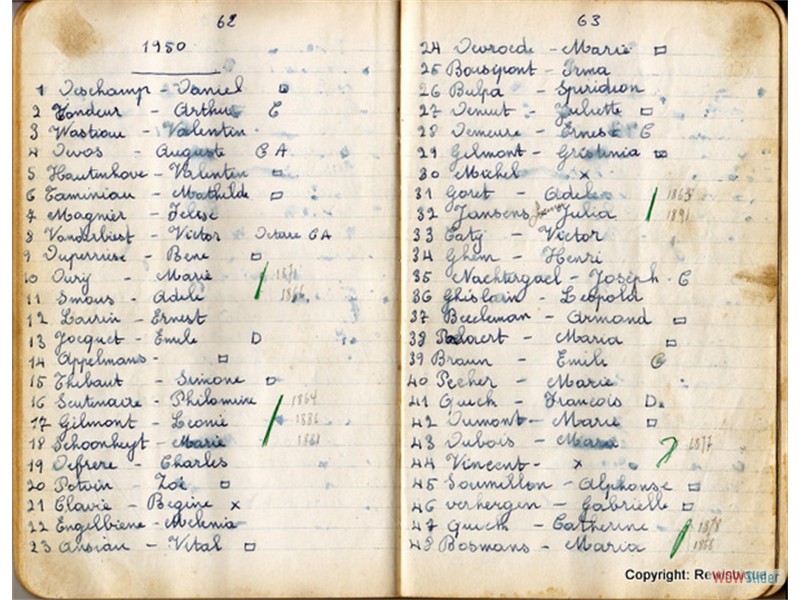 62
1950
1 Deschamp - Daniel □
2 Tondeur - Arthur C
3 Wastiau - Valentin
4 Devos - Auguste C A
5 Hautenhove - Valentin □
6 Taminiau - Mathilde □
7 Magnier - Jelise
8 Vanderbiest - Victor Octave C A
9 Duperriese - Bene □
10 Dury - Marie
11 Smous - Adele 1866
12 Laurin - Ernest
13 Jocquet - Emile D
14 Appelmans - □
15 Thibaut - Simone □
16 Scutenaire - Philomine 1864
17 Gilmont - Leonie 1886
18 Schoonheyt - Marie 1881
19 Defrere - Charles
20 Potvin - Zoé □
21 Clavie - Begine x
22 Engelbiene - Melenia
23 Ansiau - Vital □
63
24 Devroede - Marie □
25 Bousipont - Irma
26 Bulpa - Spiridion
27 Denuit - Juliette □
28 Demeure - Ernest C
29 Gilmont - Gristinia □
30 Michel x
31 Goret - Adele 1863
32 Jansens Julia 1891
33 Caty - Victor
34 Ghem - Henri
35 Nachtergael - Joseph - C
36 Ghislain - Leopold
37 Beeckman - Armand □
38 - Maria □
39 Braun - Emile C
40 Pecher - Marie
41 Quick - Francois D
42 Dumont - Marie □
43 Dubois - Maria 1877
44 Vincent - x
45 Soumillon - Alphonse □
46 verhergen - Gabrielle □
47 Quick - Catherine 1878
48 Bosmans - Maria 1866
Copyright:
WOWSlider